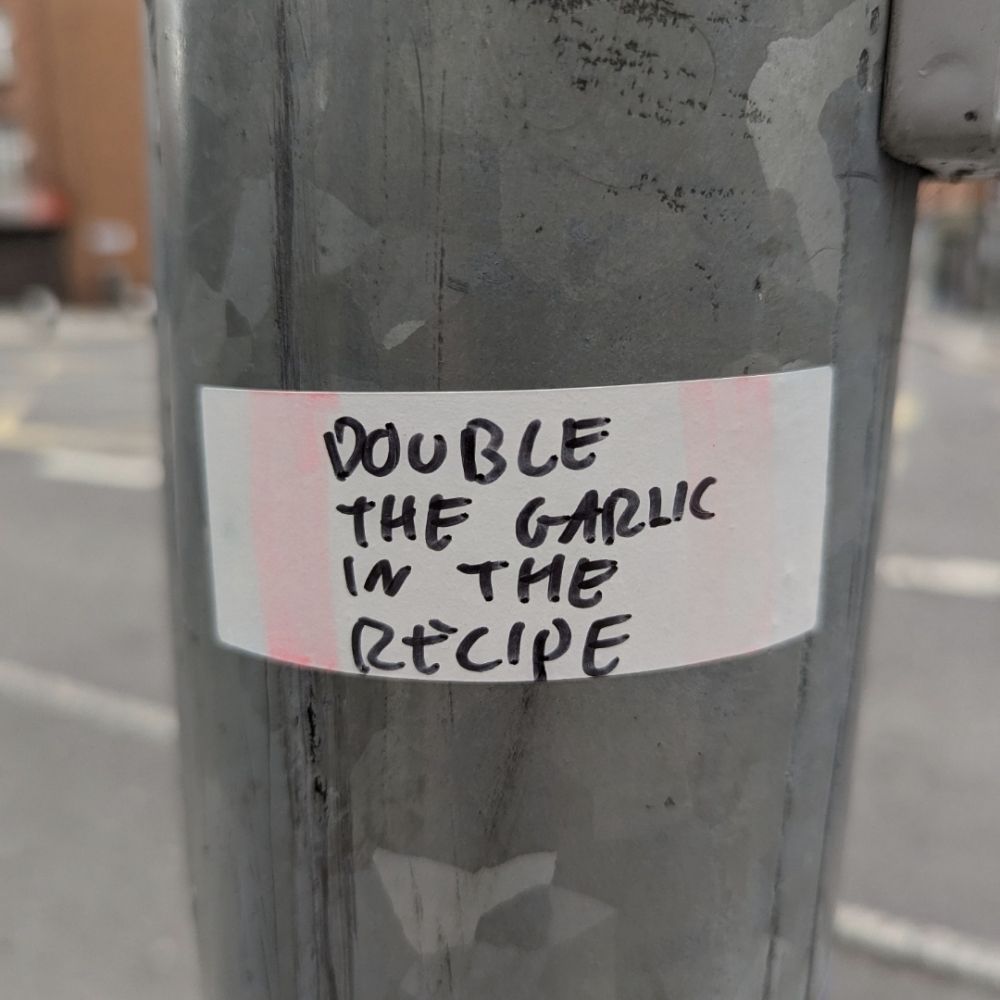 DOUBLE
THE GARLIC
IN THE
RECIPE